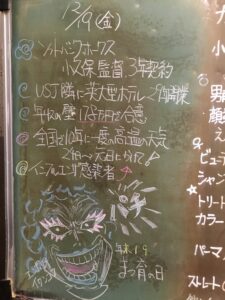 12/19(金)
ソフトバンクホークス
小久保監督 3年契約
USJ隣に大型ホテル
年収の壁178万で合意
全国に10年に一度の高温の天気
インフルエンザ感染者
12.19
まつ育の日
男
顔
え
ビューテ
シャン
トリート
カラー
パーマ
ストレート